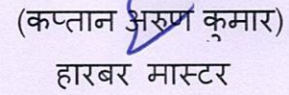 (कप्तान अरुण कुमार)
हारबर मास्टर